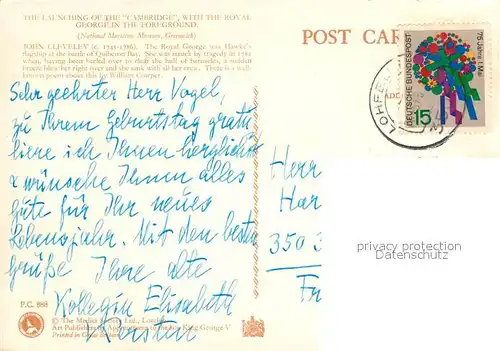 THE LAUNCHING OF THE "CAMBRIDGE", WITH THE ROYAL
GEORGE IN THE FOREGROUND.
(National Maritime Museum, Greenwich)
JOHN CLEVELEY (c. 1745-1786). The Royal George was Hawke's
flagship at the battle of Quiberon Bay. She was struck by tragedy in 1782
when, having been heeled over to clean the hull of barnacles, a sudden
breeze blew her right over and she sank with all her crew. There is a well-
known poem about this by William Cowper.
POST CAR
DEUTSCHE BUNDESPOST
75 Jahre 1. Mai
15
LOHFE
Sehr geehrter Herr Vogel,
zu Ihrem Geburtstag gratu
liere ich Ihnen herzlichst
+ wünsche Ihnen alles
gute für Ihr neues
Lebensjahr. Mit den besten
grüße Ihre alte
Kollegin Elisabeth
Herr
Har
350 3
Fr
privacy protection
Datenschutz
P.C. 888
© The Medici Society Ltd., London
Art Publishers by Appointment to the late King George V
Printed in Great Britain